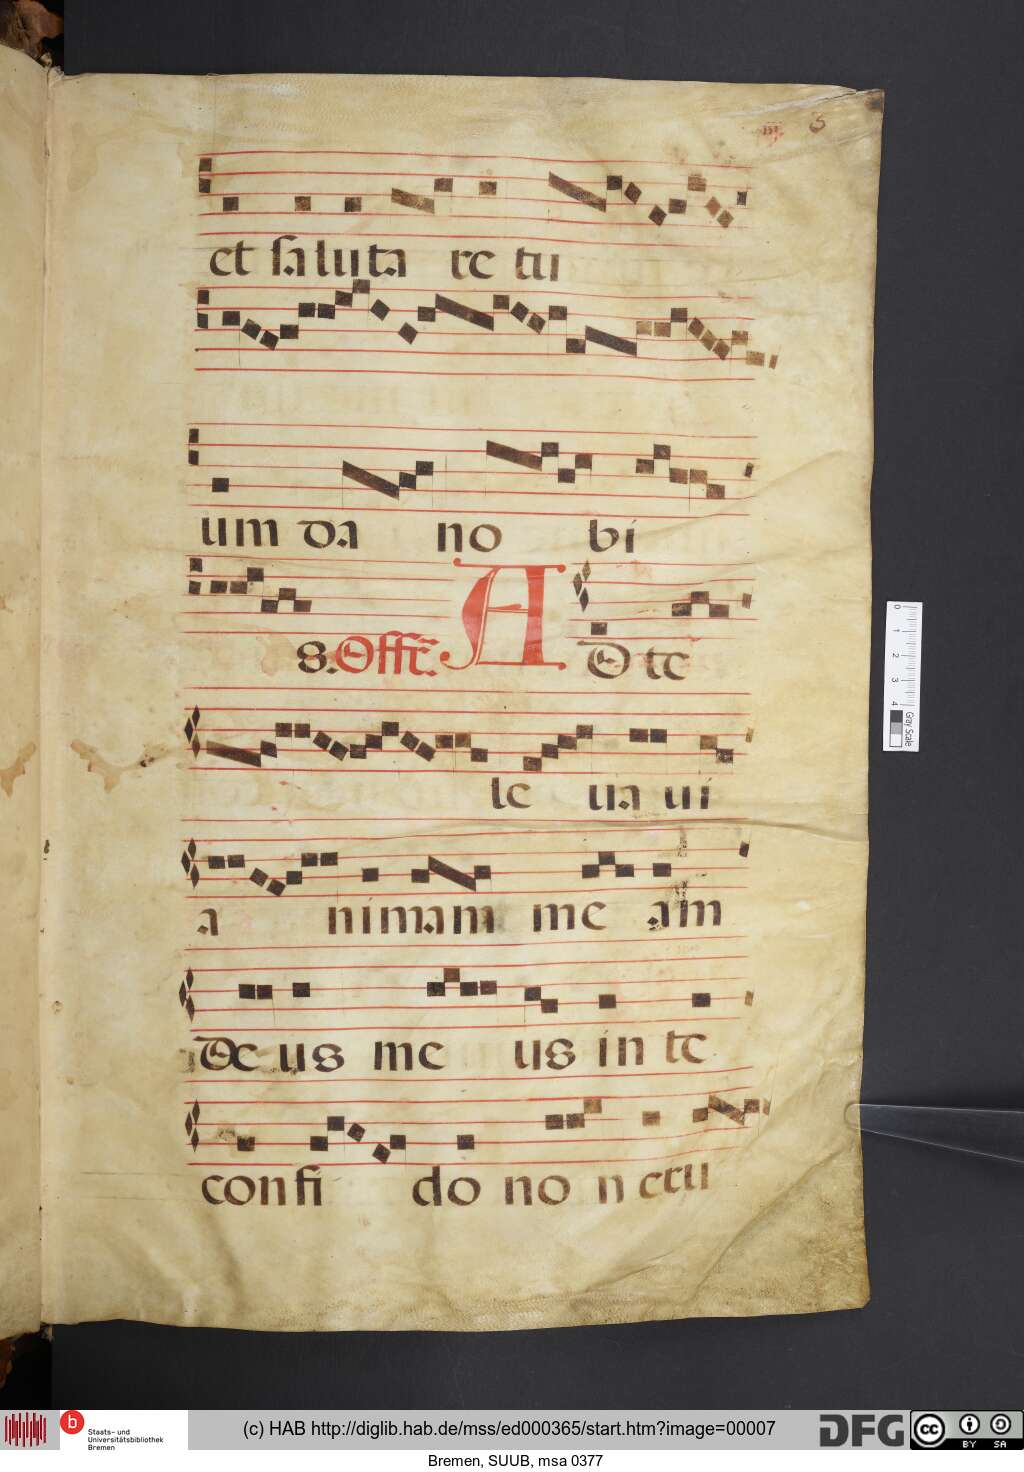 iij 3
et saluta re tu
um da no bi
s. Offr. A D te
le ua ui
a nimam me am
De us me us in te
confi do no n eru
0 1 2 3 4 Gray Scale
(c) HAB http://diglib.hab.de/mss/ed000365/start.htm?image=00007
b Staats- und
Universitätsbibliothek
Bremen
DFG
cc BY SA
Bremen, SUUB, msa 0377